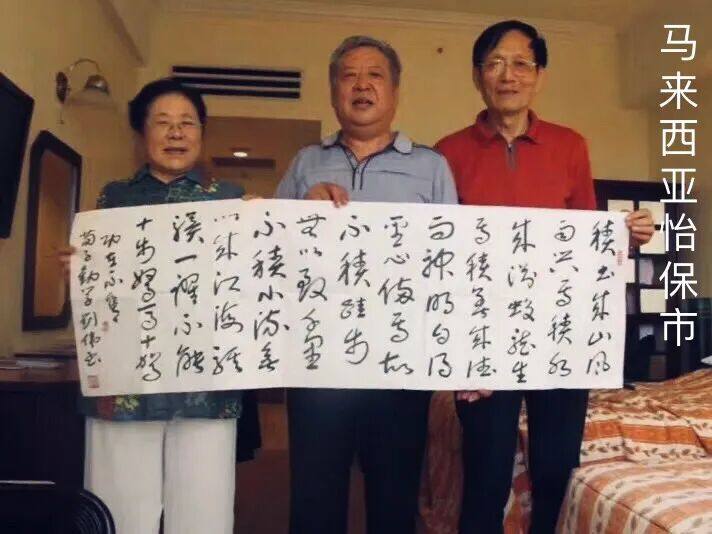 马来西亚怡保市
積土成山風
雨兴焉積水
成渊蛟龙生
焉積善成德
而神明自得
圣心備焉故
不積跬步
無以致千里
不積小流無
以成江海骐
骥一躍不能
十步驽马十驾
功在不舍
荀子勸学刘伟书